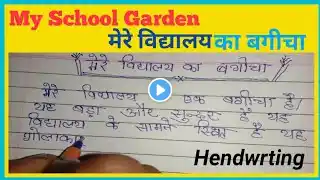 My School Garden
मेरे विद्यालय का बगीचा
मेरे विद्यालय का बगीचा
मेरे विद्यालय एक बगीचा है
यह बड़ा और सुन्दर है यह
विद्यालय के सामने स्थित है यह
गोलाका
Hendwrting